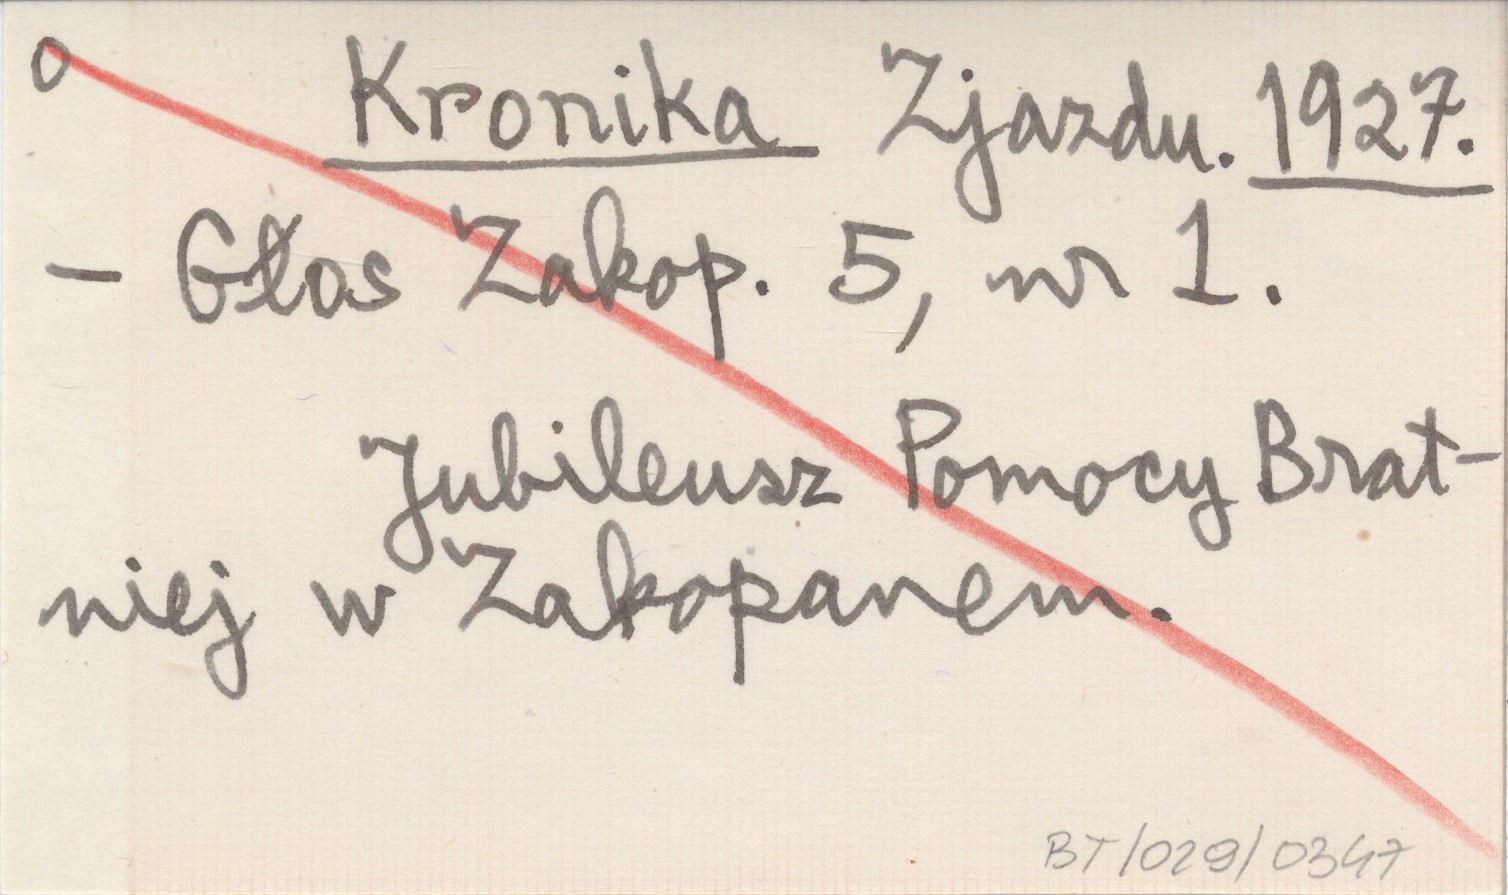 o Kronika Zjazdu. 1927.
- Głos Zakop. 5, nr 1.
Jubileusz Pomocy Brat-
niej w Zakopanem.
BT/029/0347